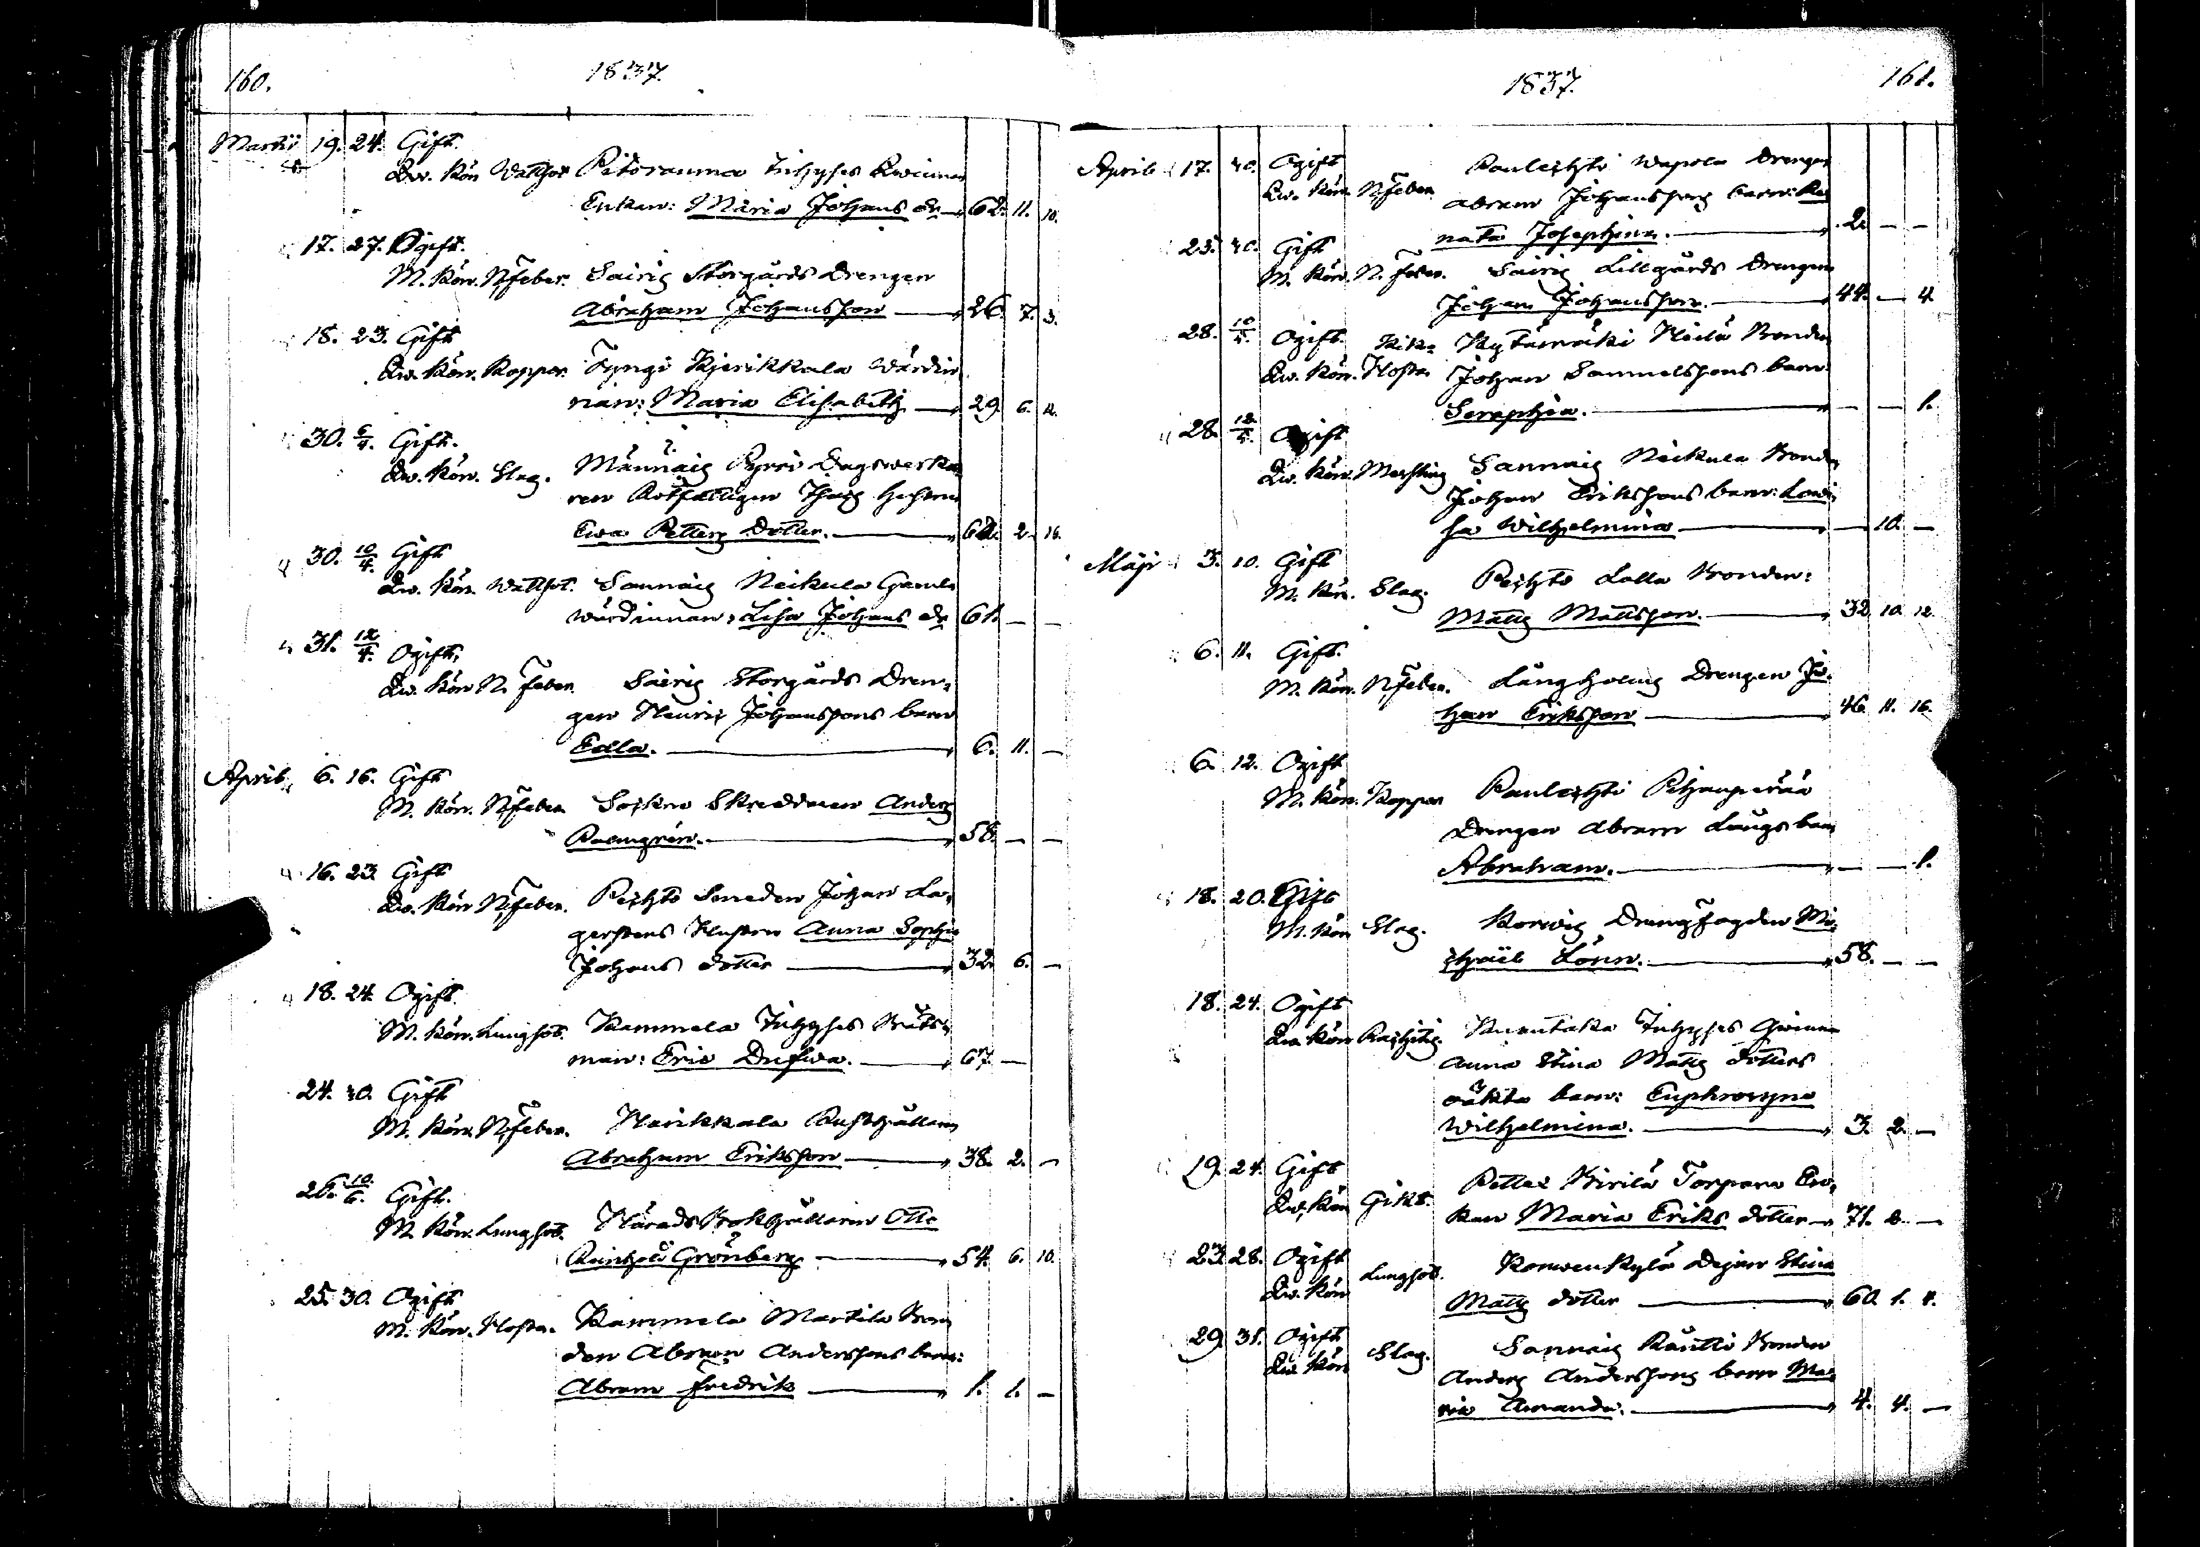 160. 1837.
Martii 19. 24. Gift.
Qw. Kön Wattsot Pitoranma Inhyses Qwinnan
Enkan: Maria Johans dr 62. 11. 10.
17. 27. Ogift.
M. Kön. N.feber. Sairis Storgårds Drengen
Abraham Johansson 26. 7. 3.
18. 23. Gift
Qw. Kön. Koppor. Tyngi Kjerikkala Wärdin
nan: Maria Elisabeth 29 6. 12.
30. 6/4. Gift.
Qw. Kön. Slag. Männäis Pyrri Dagswerka
ren Hustrun
Ewa Petters Dotter. 62. 2. 16.
30. 10/4. Gift
Qw. Kön. Wattsot. Sannäis Neikula Gamla
wärdinnan, Lisa Johans dr 61. — —
31. 12/4. Ogift.
Qw. Kön N. feber. Sairis Storgårds Dren-
gen Henric Johanssons barn
Edla. 6. 11. —
April 6. 16. Gift
M. Kön. N.feber Soikro Skreddaren Anders
Palmgrén. 58. — —
16. 23. Gift
Qw. Kön N.feber. Peihto Smeden Johan La-
gerstens Hustru Anna Sophia
Johans dotter 32. 6. —
18. 24. Ogift.
M. Kön. Lungsot. Kammela Inhyses Båts-
man: Eric Dufwa. 67. —
24. 30. Gift
M. Kön. N.feber. Harikkala
Abraham Eriksson 38. 2. —
26. 10/6. Gift.
M. Kön. Lungsot. Härads Bokhållaren Otto
Reinhold Grönberg 54. 6. 10.
25. 30. Ogift
M. Kön. Hosta. Kammela Martila Bon
den Abram Anderssons barn:
Abram Fredrik 1. 1. —
1837. 161.
April 17. 30. Ogift
Qw. Kön. N.feber. Paulahti Wapola Drengen
Abram Johanssons barn: Re
nata Josephina. 2. — —
25. 30. Gift
M. Kön. N. feber. Sairis Lillgårds Drengen
Johan Johansson. 44. — 4.
28. 10/5. Ogift Kik- Kytämäki Heilä Bonden
Qw. Kön. Hosta Johan Samuelssons barn
Seraphia. — — 1.
28. 12/5. Ogift
Qw. Kön. Messling Sannäis Neikula Bonden
Johan Erikssons barn: Lowi
sa Wilhelmina — 10. —
Maji 3. 10. Gift
M. Kön. Slag. Peihto Lalla Bonden:
Matts Mattsson. 32. 10. 12.
6. 11. Gift.
M. Kön. N.feber. Långholms Drengen Jo-
han Eriksson 46. 11. 16.
6. 12. Ogift
M. Kön. Koppor Paulahti Pihanperää
Drengen Abram Längs barn
Abraham. — — 1.
18. 20. Gift
M. Kön Slag. Korwis Drengfogden Mi-
chaël Lönn. 58. — —
18. 24. Ogift
Qw. Kön Rachitis. Inhyses Qwinnan
Anna Stina Matts dotters
oäkta barn: Euphrosyne
Wilhelmina. 3. 2. —
19. 24. Gift
Qw. Kön Gikt. Pettes Kirilä Torpare En-
kan Maria Eriks dotter 71. 2. —
23. 28. Ogift
Qw. Kön Lungsot. Korwenkylä Dejan Stina
Matts dotter 60. 1. 4.
29. 31. Ogift
Qw. Kön Slag. Sannäis Räutti Bonden
Anders Anderssons barn Ma-
ria Amanda. 4. 4. —